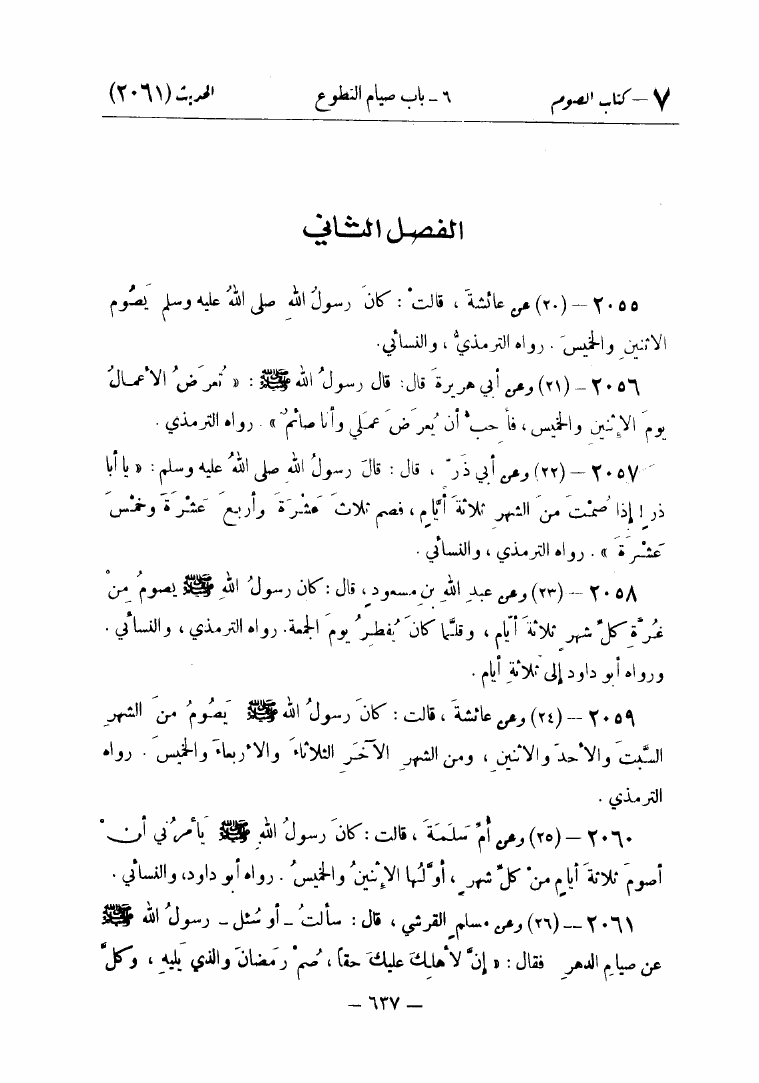 ٧ – كتاب الصوم ٦ - باب صيام التطوع الحديث (٢٠٦١)
الفصل الثاني
٢٠٥٥ – (٢٠) عن عائشةَ ، قالتْ : كانَ رسولُ اللهِ صلى اللهُ عليه وسلم يَصُوم
الاثنينِ والخميسَ . رواه الترمذيُّ ، والنسائي.
٢٠٥٦ – (٢١) وعن أبي هريرةَ قال: قال رسولُ الله ﷺ : « تُعرَضُ الأعمالُ
يومَ الإثنينِ والخميس ، فأحبُّ أن يُعرَضَ عملي وأنا صائمٌ » . رواه الترمذي .
٢٠٥٧ – (٢٢) وعن أبي ذَرّ ، قال : قالَ رسولُ اللهِ صلى اللهُ عليه وسلم : « يا أبا
ذر ! إذا صُمْتَ منَ الشهرِ ثلاثةَ أيَّامٍ ، فصم ثلاثَ عَشْرَةَ وأربعَ عَشْرَةَ وخمْسَ
عَشْرَةَ » . رواه الترمذي ، والنسائي .
٢٠٥٨ – (٢٣) وعن عبدِ اللهِ بنِ مسعودٍ، قال : كان رسولُ اللهِ ﷺ يصومُ مِنْ
غُرَّةِ كلِّ شهرٍ ثلاثةَ أيّام ، وقلَّما كانَ يُفطِرُ يومَ الجمعة. رواه الترمذي ، والنسائي .
ورواه أبو داود إلى ثلاثةِ أيام .
٢٠٥٩ – (٢٤) وعن عائشةَ ، قالت : كانَ رسولُ الله ﷺ يَصُومُ منَ الشهرِ
السَّبتَ والأحدَ والاثنينِ ، ومن الشهرِ الآخَرِ الثلاثاءَ والأربعاءَ والخميسَ . رواه
الترمذي .
٢٠٦٠ – (٢٥) وعن أُمِّ سَلَمَةَ ، قالت : كانَ رسولُ اللهِ ﷺ يَأمرُني أنْ
أصومَ ثلاثةَ أيامٍ منْ كلِّ شهرٍ ، أوَّلُها الإثنينُ والخميسُ . رواه أبو داود، والنسائي .
٢٠٦١ – (٢٦) وعن مسلمٍ القرشي ، قال : سألتُ - أو سُئل - رسولُ الله ﷺ
عن صيامِ الدهرِ فقال : « إنَّ لأهلِكَ عليكَ حقاً ، صُمْ رَمضانَ والذي يَليهِ ، وكلَّ
– ٦٣٧ –